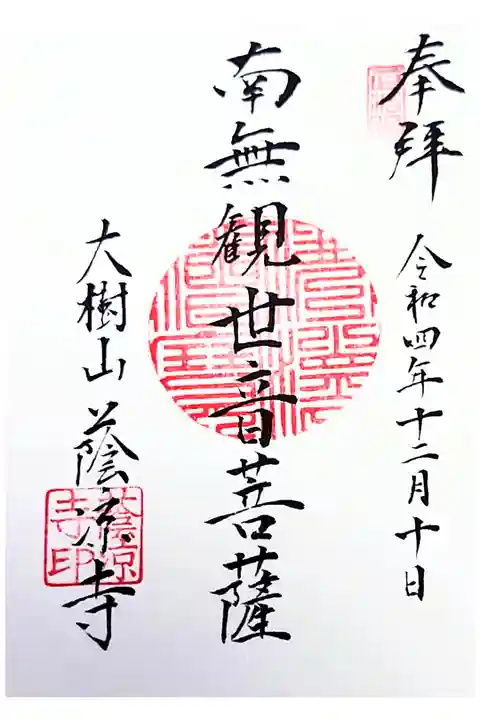 奉拝
令和四年十二月十日
南無観世音菩薩
大樹山 蔭凉寺
蔭凉
寺印